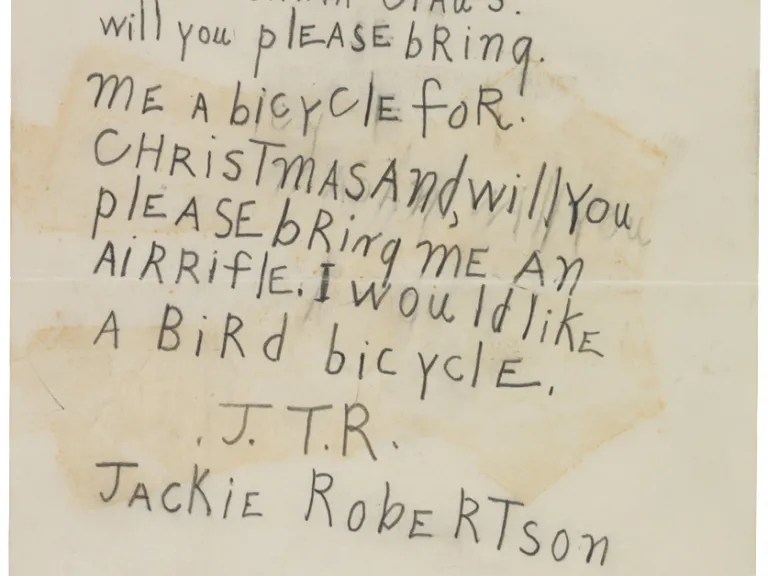 will you plEASE bRing.
mE A bicYclE foR.
CHRisTmAS And, will You
plEASE bRing mE An
AiRRiflE. I would likE
A BiRd bicYclE.
. J. T.R.
JAcKiE RobERTson